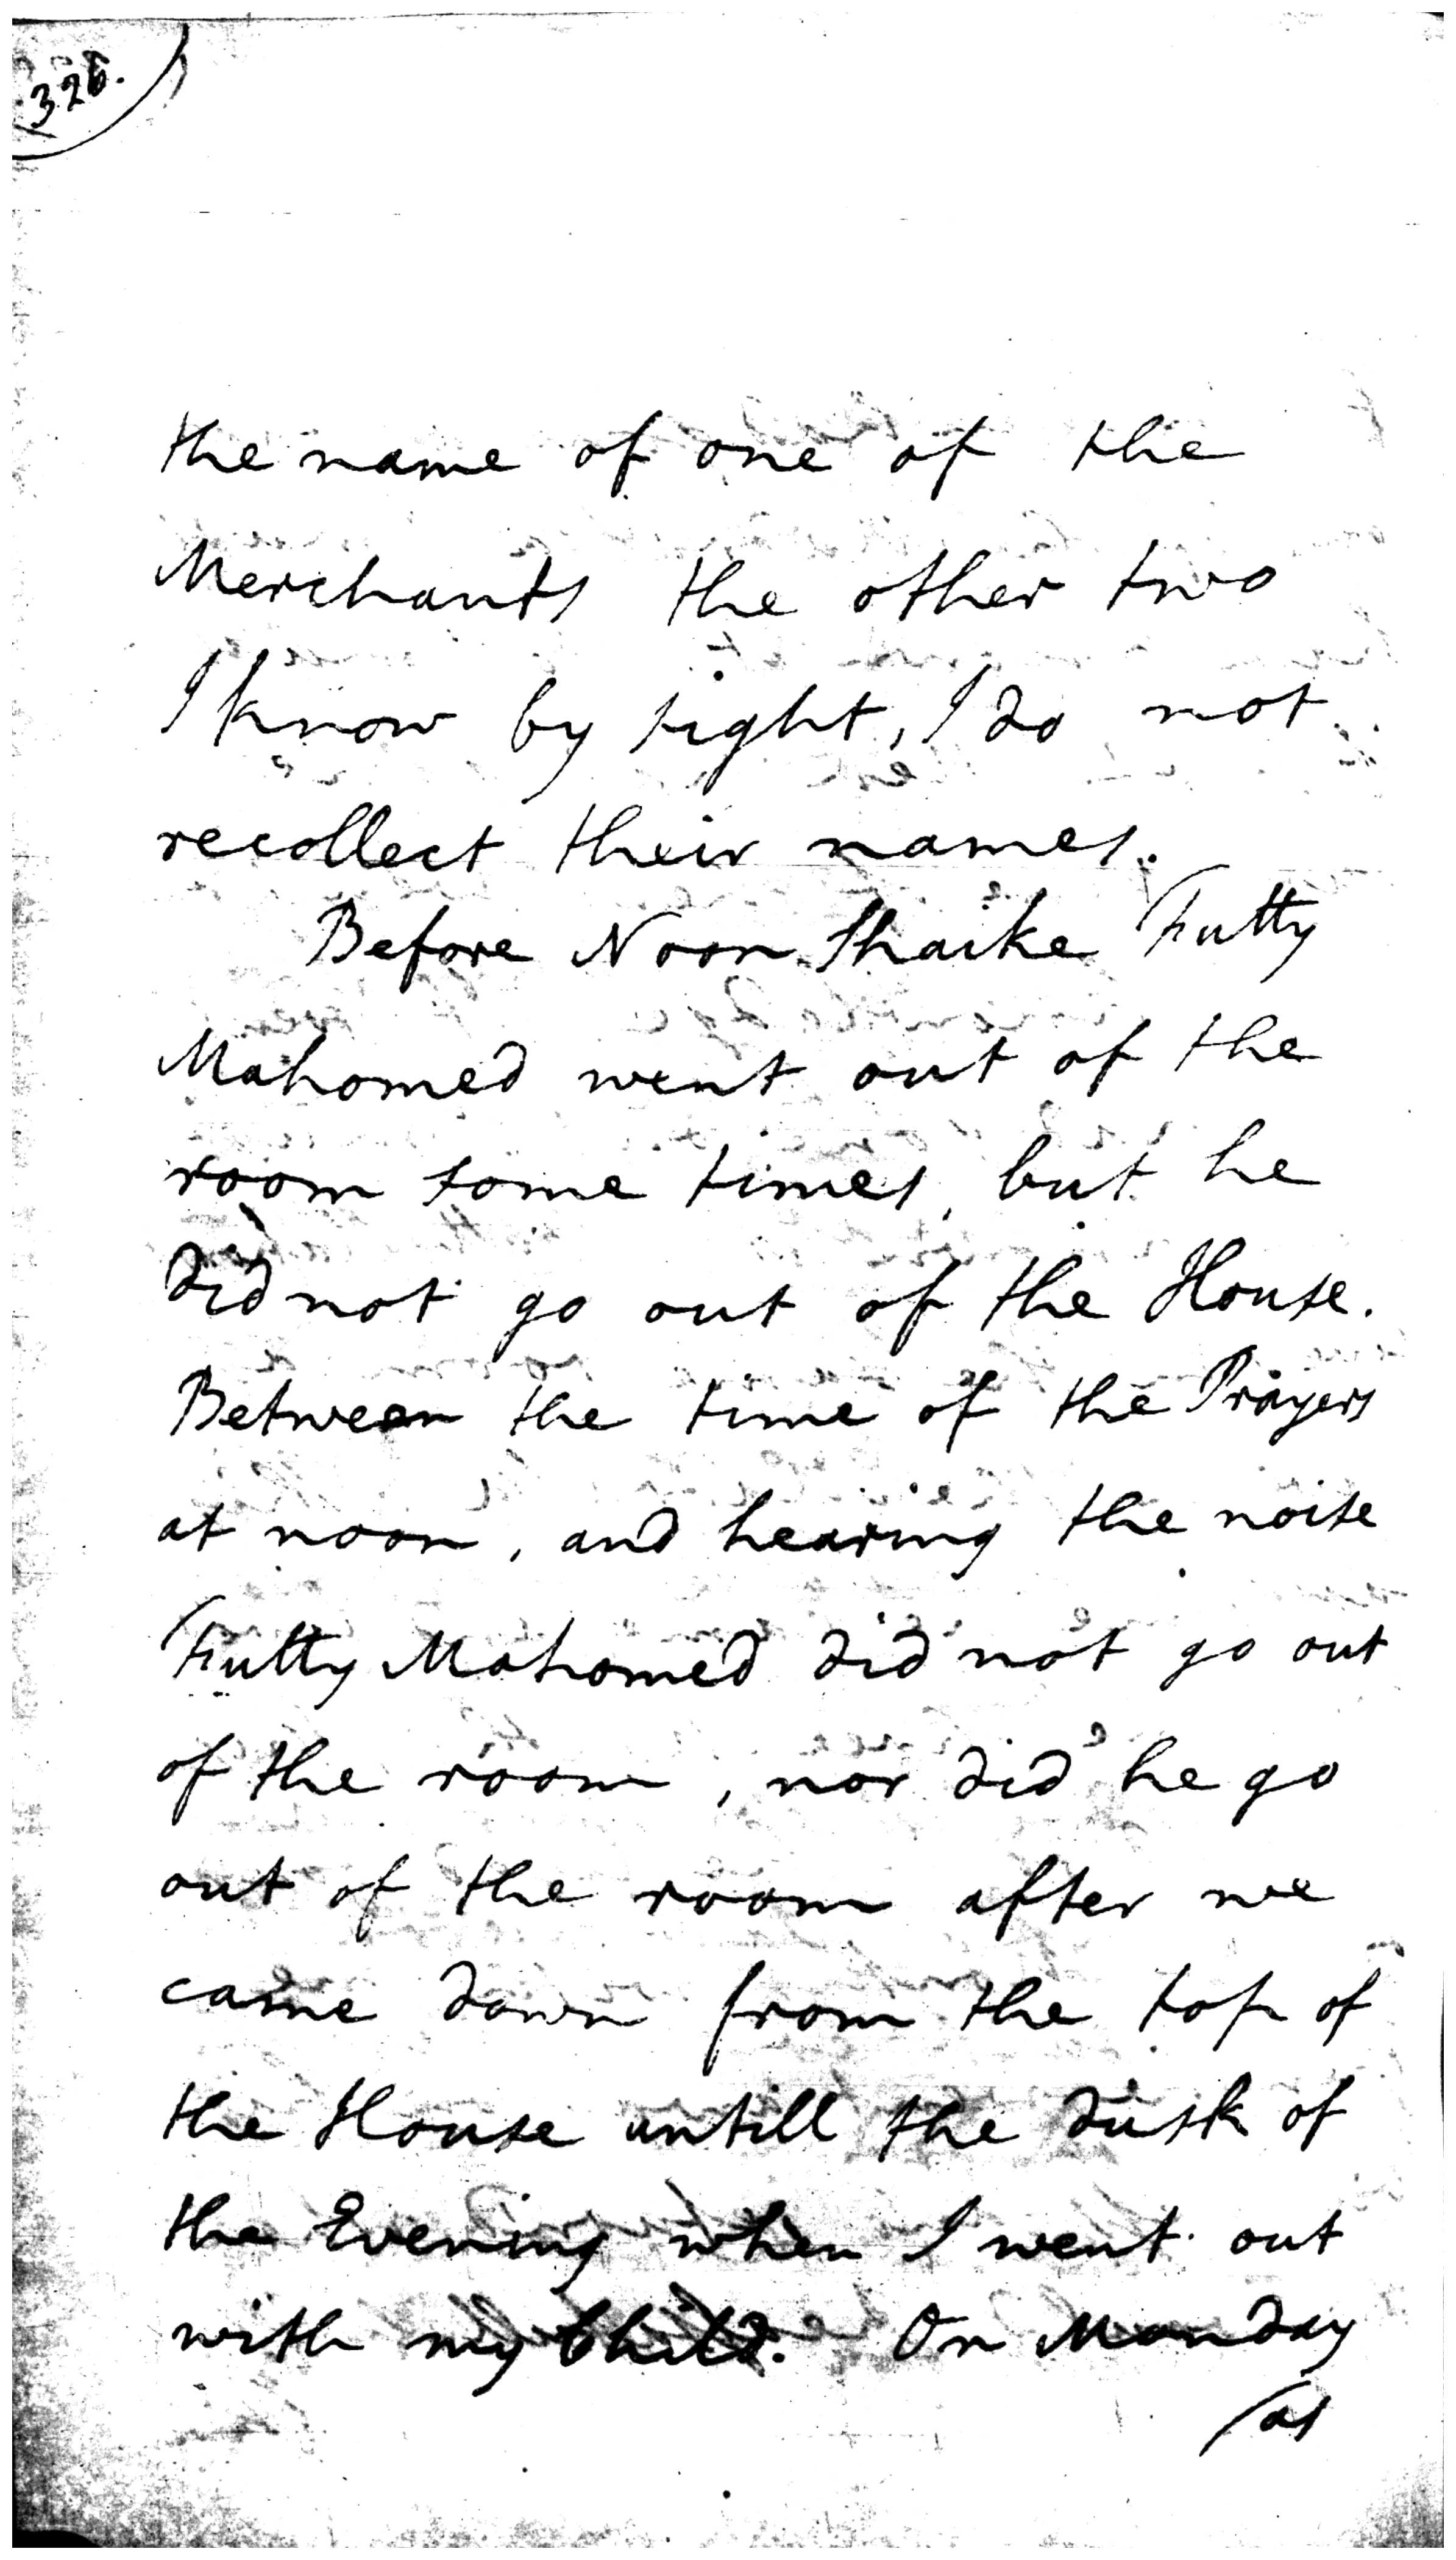 326.
the name of one of the
Merchants the other two
I know by sight, I do not
recollect their names.
Before Noon Shaike Futty
Mahomed went out of the
room some times, but he
did not go out of the House.
Between the time of the Prayers
at noon, and hearing the noise
Futty Mahomed did not go out
of the room, nor did he go
out of the room after we
came down from the top of
the House untill the dusk of
the Evening when I went out
with my Child. On Monday
as